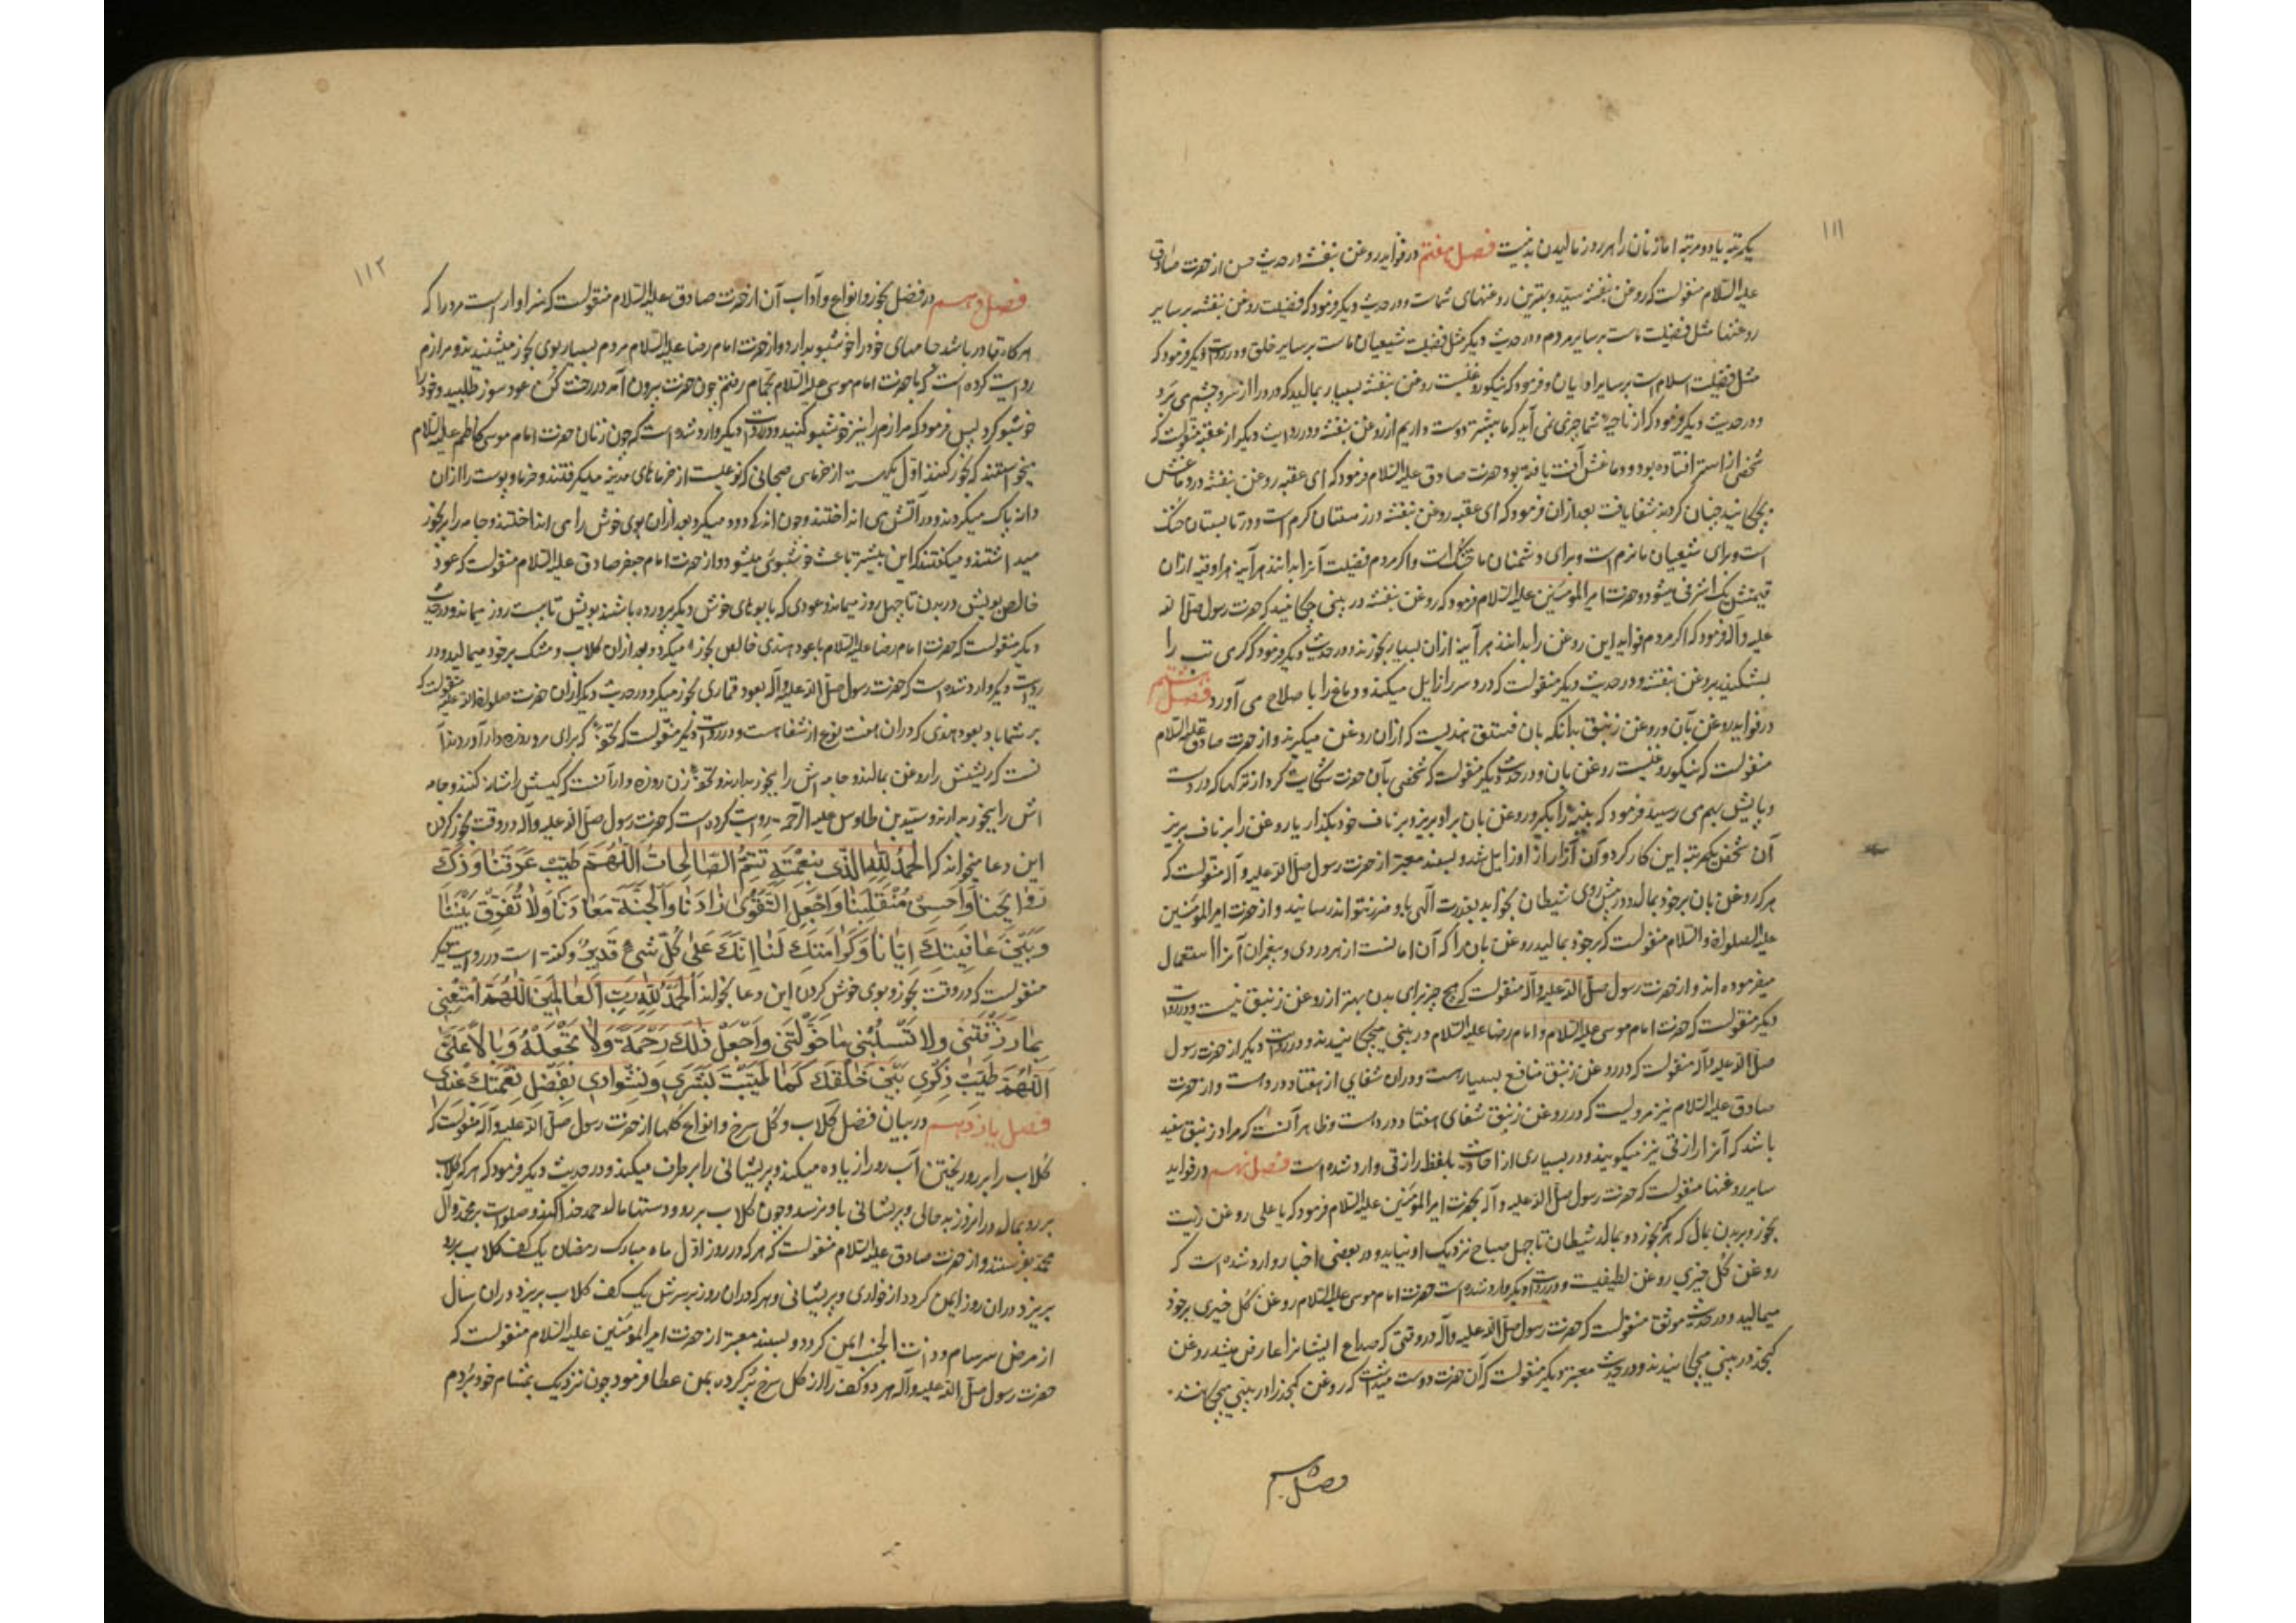 ۱۱۱
یکمرتبه یا دو مرتبه اما زنان را هر روز مالیدن بد نیست فصل هفتم در فواید روغن بنفشه در حدیث حسن از حضرت صادق
علیه السّلام منقولست که روغن بنفشه سیّد و بهترین روغنهای شماست و در حدیث دیکر فرمود که فضیلت روغن بنفشه بر سایر
روغنها مثل فضیلت ماست بر سایر مردم و در حدیث دیکر مثل فضیلت شیعیان ماست بر سایر خلق و در روایت دیکر فرمود که
مثل فضیلت اسلام است بر سایر ادیان و فرمود که نیکو روغنیست روغن بنفشه بسیار بمالید که درد را از سر و چشم می برد
و در حدیث دیکر فرمود که از ناحیهٔ شما چیزی نمی آید که ما بیشتر دوست داریم از روغن بنفشه و در روایت دیکر از عقبه منقولست که
شخصی از استر افتاده بود و دماغش آفت یافته بود حضرت صادق علیه السّلام فرمود که ای عقبه روغن بنفشه در دماغش
بچکانید چنان کردند شفا یافت بعد از ان فرمود که ای عقبه روغن بنفشه در زمستان کرم است و در تابستان خنک
است و برای شیعیان ما نرم است و برای دشمنان ما خشک است و اکر مردم فضیلت آنرا بدانند هر آینه هر اوقیه از ان
قیمتش یک اشرفی میشود و حضرت امیر المؤمنین علیه السّلام فرمود که روغن بنفشه در بینی چکانید که حضرت رسول صلّی الله
علیه و آله فرمود که اکر مردم فواید این روغن را بدانند هر آینه ازان بسیار بخورند و در حدیث دیکر فرمود که کرمی تب را
بشکنید بروغن بنفشه و در حدیث دیکر منقولست که درد سر را زایل میکند و دماغ را باصلاح می آورد فصل هشتم
در فواید روغن بان و روغن زنبق بدانکه بان فستق هندیست که ازان روغن میکیرند و از حضرت صادق علیه السّلام
منقولست که نیکو روغنیست روغن بان و در حدیث دیکر منقولست که شخصی بآن حضرت شکایت کرد از ترکها که در دست
و پایش بهم می رسید فرمود که پنبه را بکیر و روغن بان بر او بریز و بر ناف خود بکذار یا روغن را بر ناف بریز
آن شخص یکمرتبه این کار کرد و آن آزار از او زایل شد و بسند معتبر از حضرت رسول صلّی الله علیه و آله منقولست که
هر که روغن بان بر خود بمالد و در پیش روی شیطان بخوابد بقدرت آلهی باو ضرر نتواند رسانید و از حضرت امیر المؤمنین
علیه الصلوة و السّلام منقولست که بر خود بمالید روغن بان را که آن امانست از هر دردی و پیغمبران آنرا استعمال
میفرموده اند و از حضرت رسول صلّی الله علیه و آله منقولست که هیچ چیز برای بدن بهتر از روغن زنبق نیست و در روایت
دیکر منقولست که حضرت امام موسی علیه السّلام و امام رضا علیه السّلام در بینی میچکانیدند و در روایت دیکر از حضرت رسول
صلّی الله علیه و آله منقولست که در روغن زنبق منافع بسیار است و در ان شفای از هفتاد درد است و از حضرت
صادق علیه السّلام نیز مرویست که در روغن زنبق شفای هفتاد درد است و ظاهر آنست که مراد زنبق سفید
باشد که آنرا رازقی نیز میکویند و در بسیاری از احادیث بلفظ رازقی وارد شده است فصل نهم در فواید
سایر روغنها منقولست که حضرت رسول صلّی الله علیه و آله بحضرت امیر المؤمنین علیه السّلام فرمود که یا علی روغن زیت
بخور و بر بدن بمال که هر که بخورد و بمالد شیطان تا چهل صباح نزدیک او نیاید و در بعضی اخبار وارد شده است که
روغن کل خیری روغن لطیفیست و در روایت دیکر وارد شده است حضرت امام موسی علیه السّلام روغن کل خیری بر خود
میمالید و در حدیث موثق منقولست که حضرت رسول صلّی الله علیه و آله در وقتی که صداع ایشانرا عارض میشد روغن
کنجد در بینی میچکانیدند و در حدیث معتبر دیکر منقولست که آن حضرت دوست میداشت که روغن کنجد را در بینی بچکانند
فصل دهم
۱۱۲
فصل دهم در فضل بخور و انواع و آداب آن از حضرت صادق علیه السّلام منقولست که سزاوار است مرد را که
هر کاه قادر باشد جامهای خود را خوشبو بدارد و از حضرت امام رضا علیه السّلام مردم بسیار بوی بخور میشنیدند و مرازم
روایت کرده است که با حضرت امام موسی علیه السّلام بحمام رفتم چون حضرت بیرون آمد در رخت کن عود سوز طلبید و خود را
خوشبو کرد پس فرمود که مرازم را نیز خوشبو کنید و در روایت دیکر وارد شده است که چون زنان حضرت امام موسی کاظم علیه السّلام
میخواستند که بخور کنند اوّل یک هسته از خرمای صیحانی که نوعیست از خرماهای مدینه میکرفتند و خرما و پوست را از ان
دانه پاک میکردند و در آتش می انداختند و چون اندک دود میکرد بعد از ان بوی خوش را می انداختند و جامه را بر بخور
میداشتند و میکفتند که این بیشتر باعث خوشبوئی میشود و از حضرت امام جعفر صادق علیه السّلام منقولست که عود
خالص بویش در بدن تا چهل روز میماند و عودی که با بوهای خوش دیکر پرورده باشند بویش تا بیست روز میماند و در حدیث
دیکر منقولست که حضرت امام رضا علیه السّلام با عود هندی خالص بخور میکرد و بعد از ان کلاب و مشک بر خود میمالید و در
روایت دیکر وارد شده است که حضرت رسول صلّی الله علیه و آله بعود قماری بخور میکرد و در حدیث دیکر از ان حضرت صلوات الله علیه منقولست که
بر شما باد بعود هندی که در ان هفت نوع از شفا هست و در روایت دیکر منقولست که تحفهٔ که برای مرد روزه دار آورند آ
نست که ریشش را روغن بمالند و جامه اش را ببخور بدارند و تحفهٔ زن روزه دار آنست که کیسش را شانه کنند و جامه
اش را ببخور بدارند و سیّد بن طاوس علیه الرّحمه روایت کرده است که حضرت رسول صلّی الله علیه و آله در وقت بخور کردن
این دعا میخواند که اَلْحَمْدُ لِلّٰهِ الَّذِی بِنِعْمَتِهِ تَتِمُّ الصّٰالِحٰاتُ اَللّٰهُمَّ طَیِّبْ عَرَقَنٰا وَ ذَکِّ
رَوٰایِحَنٰا وَ اَحْسِنْ مُنْقَلَبَنٰا وَ اجْعَلِ التَّقْوٰی زٰادَنٰا وَ الْجَنَّةَ مَعٰادَنٰا وَ لٰا تُفَرِّقْ بَیْنَنٰا
وَ بَیْنَ عٰافِیَتِکَ اِیّٰانٰا وَ کَرٰامَتِکَ لَنٰا اِنَّکَ عَلٰی کُلِّ شَیْءٍ قَدِیرٌ و کفته است در روایت دیکر
منقولست که در وقت بخور و بوی خوش کردن این دعا بخواند اَلْحَمْدُ لِلّٰهِ رَبِّ الْعٰالَمِینَ اَللّٰهُمَّ اَمْتِعْنِی
بِمٰا رَزَقْتَنِی وَ لٰا تَسْلُبْنِی مٰا خَوَّلْتَنِی وَ اجْعَلْ ذٰلِکَ رَحْمَةً وَ لٰا تَجْعَلْهُ وَبٰالاً عَلَیَّ
اَللّٰهُمَّ طَیِّبْ ذِکْرِی بَیْنَ خَلْقِکَ کَمٰا طَیَّبْتَ بَشَرِی وَ نِشْوٰارِی بِفَضْلِ نِعْمَتِکَ عِنْدِی
فصل یازدهم در بیان فضل کلاب و کل سرخ و انواع کلها از حضرت رسول صلّی الله علیه و آله منقولست که
کلاب را بر رو ریختن آب رو را زیاده میکند و پریشانی را برطرف میکند و در حدیث دیکر فرمود که هر که کلاب
بر رو بمالد در انروز بد حالی و پریشانی باو نرسد و چون کلاب بر رو و دستها مالد حمد خدا کند و صلوات بر محمّد و آل
محمّد بفرستد و از حضرت صادق علیه السّلام منقولست که هر که در روز اوّل ماه مبارک رمضان یک کف کلاب بر رو
بریزد در ان روز ایمن کردد از خواری و پریشانی و هر که در ان روز بر سرش یک کف کلاب بریزد در ان سال
از مرض سرسام و ذات الجنب ایمن کردد و بسند معتبر از حضرت امیر المؤمنین علیه السّلام منقولست که
حضرت رسول صلّی الله علیه و آله هر دو کف را از کل سرخ پر کرده بمن عطا فرمود چون نزدیک بمشام خود بردم